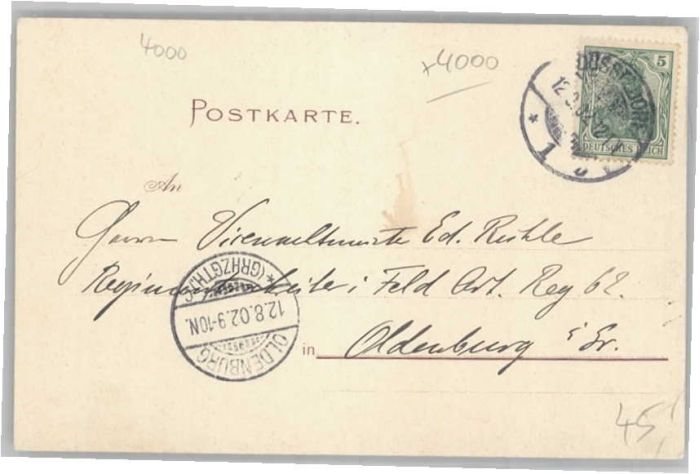 4000
x4000
5
DÜSSELDORF
12.8.02
* 1
DEUTSCHES REICH
POSTKARTE.
An
Herrn Ed. Rühle
i Feld Art. Reg 62.
in Oldenburg i Gr.
OLDENBURG
12.8.02.9-10N.
*(GRHZGTH.)C
45,-